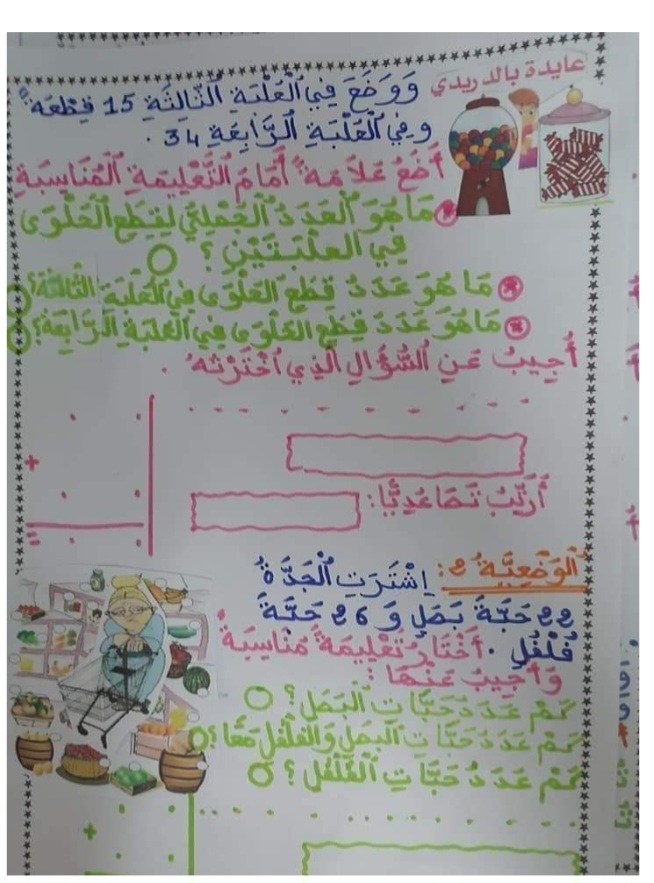 عايدة بالدريدي
وَوَضَعَ فِي الْعُلْبَةِ الثَّالِثَةِ 15 قِطْعَةً
وفِي الْعُلْبَةِ الرَّابِعَةِ 34 .
أَضَعُ عَلَامَةً أَمَامَ التَّعْلِيمَةِ الْمُنَاسِبَةِ
مَا هُوَ الْعَدَدُ الْجُمْلِيُّ لِقِطَعِ الْحَلْوَى
فِي العُلْبَتَيْنِ ؟
مَا هُوَ عَدَدُ قِطَعِ الحَلْوَى فِي الْعُلْبَةِ الثَّالِثَةِ؟
مَا هُوَ عَدَدُ قِطَعِ الحَلْوَى فِي العُلْبَةِ الرَّابِعَةِ؟
أُجِيبُ عَنِ السُّؤَالِ الَّذِي اخْتَرْتُهُ .
+
=
أُرَتِّبُ تَصَاعُدِيًّا :
الْوَضْعِيَّةُ 2 : اِشْتَرَتِ الْجَدَّةُ
22 حَبَّةَ بَصَلٍ وَ 26 حَبَّةَ
فُلْفُلٍ . أَخْتَارُ تَعْلِيمَةً مُنَاسِبَةً
وَأُجِيبُ عَنْهَا :
كَمْ عَدَدُ حَبَّاتِ الْبَصَلِ ؟
كَمْ عَدَدُ حَبَّاتِ الْبَصَلِ وَالفُلْفُلِ مَعًا ؟
كَمْ عَدَدُ حَبَّاتِ الْفُلْفُلِ ؟
+